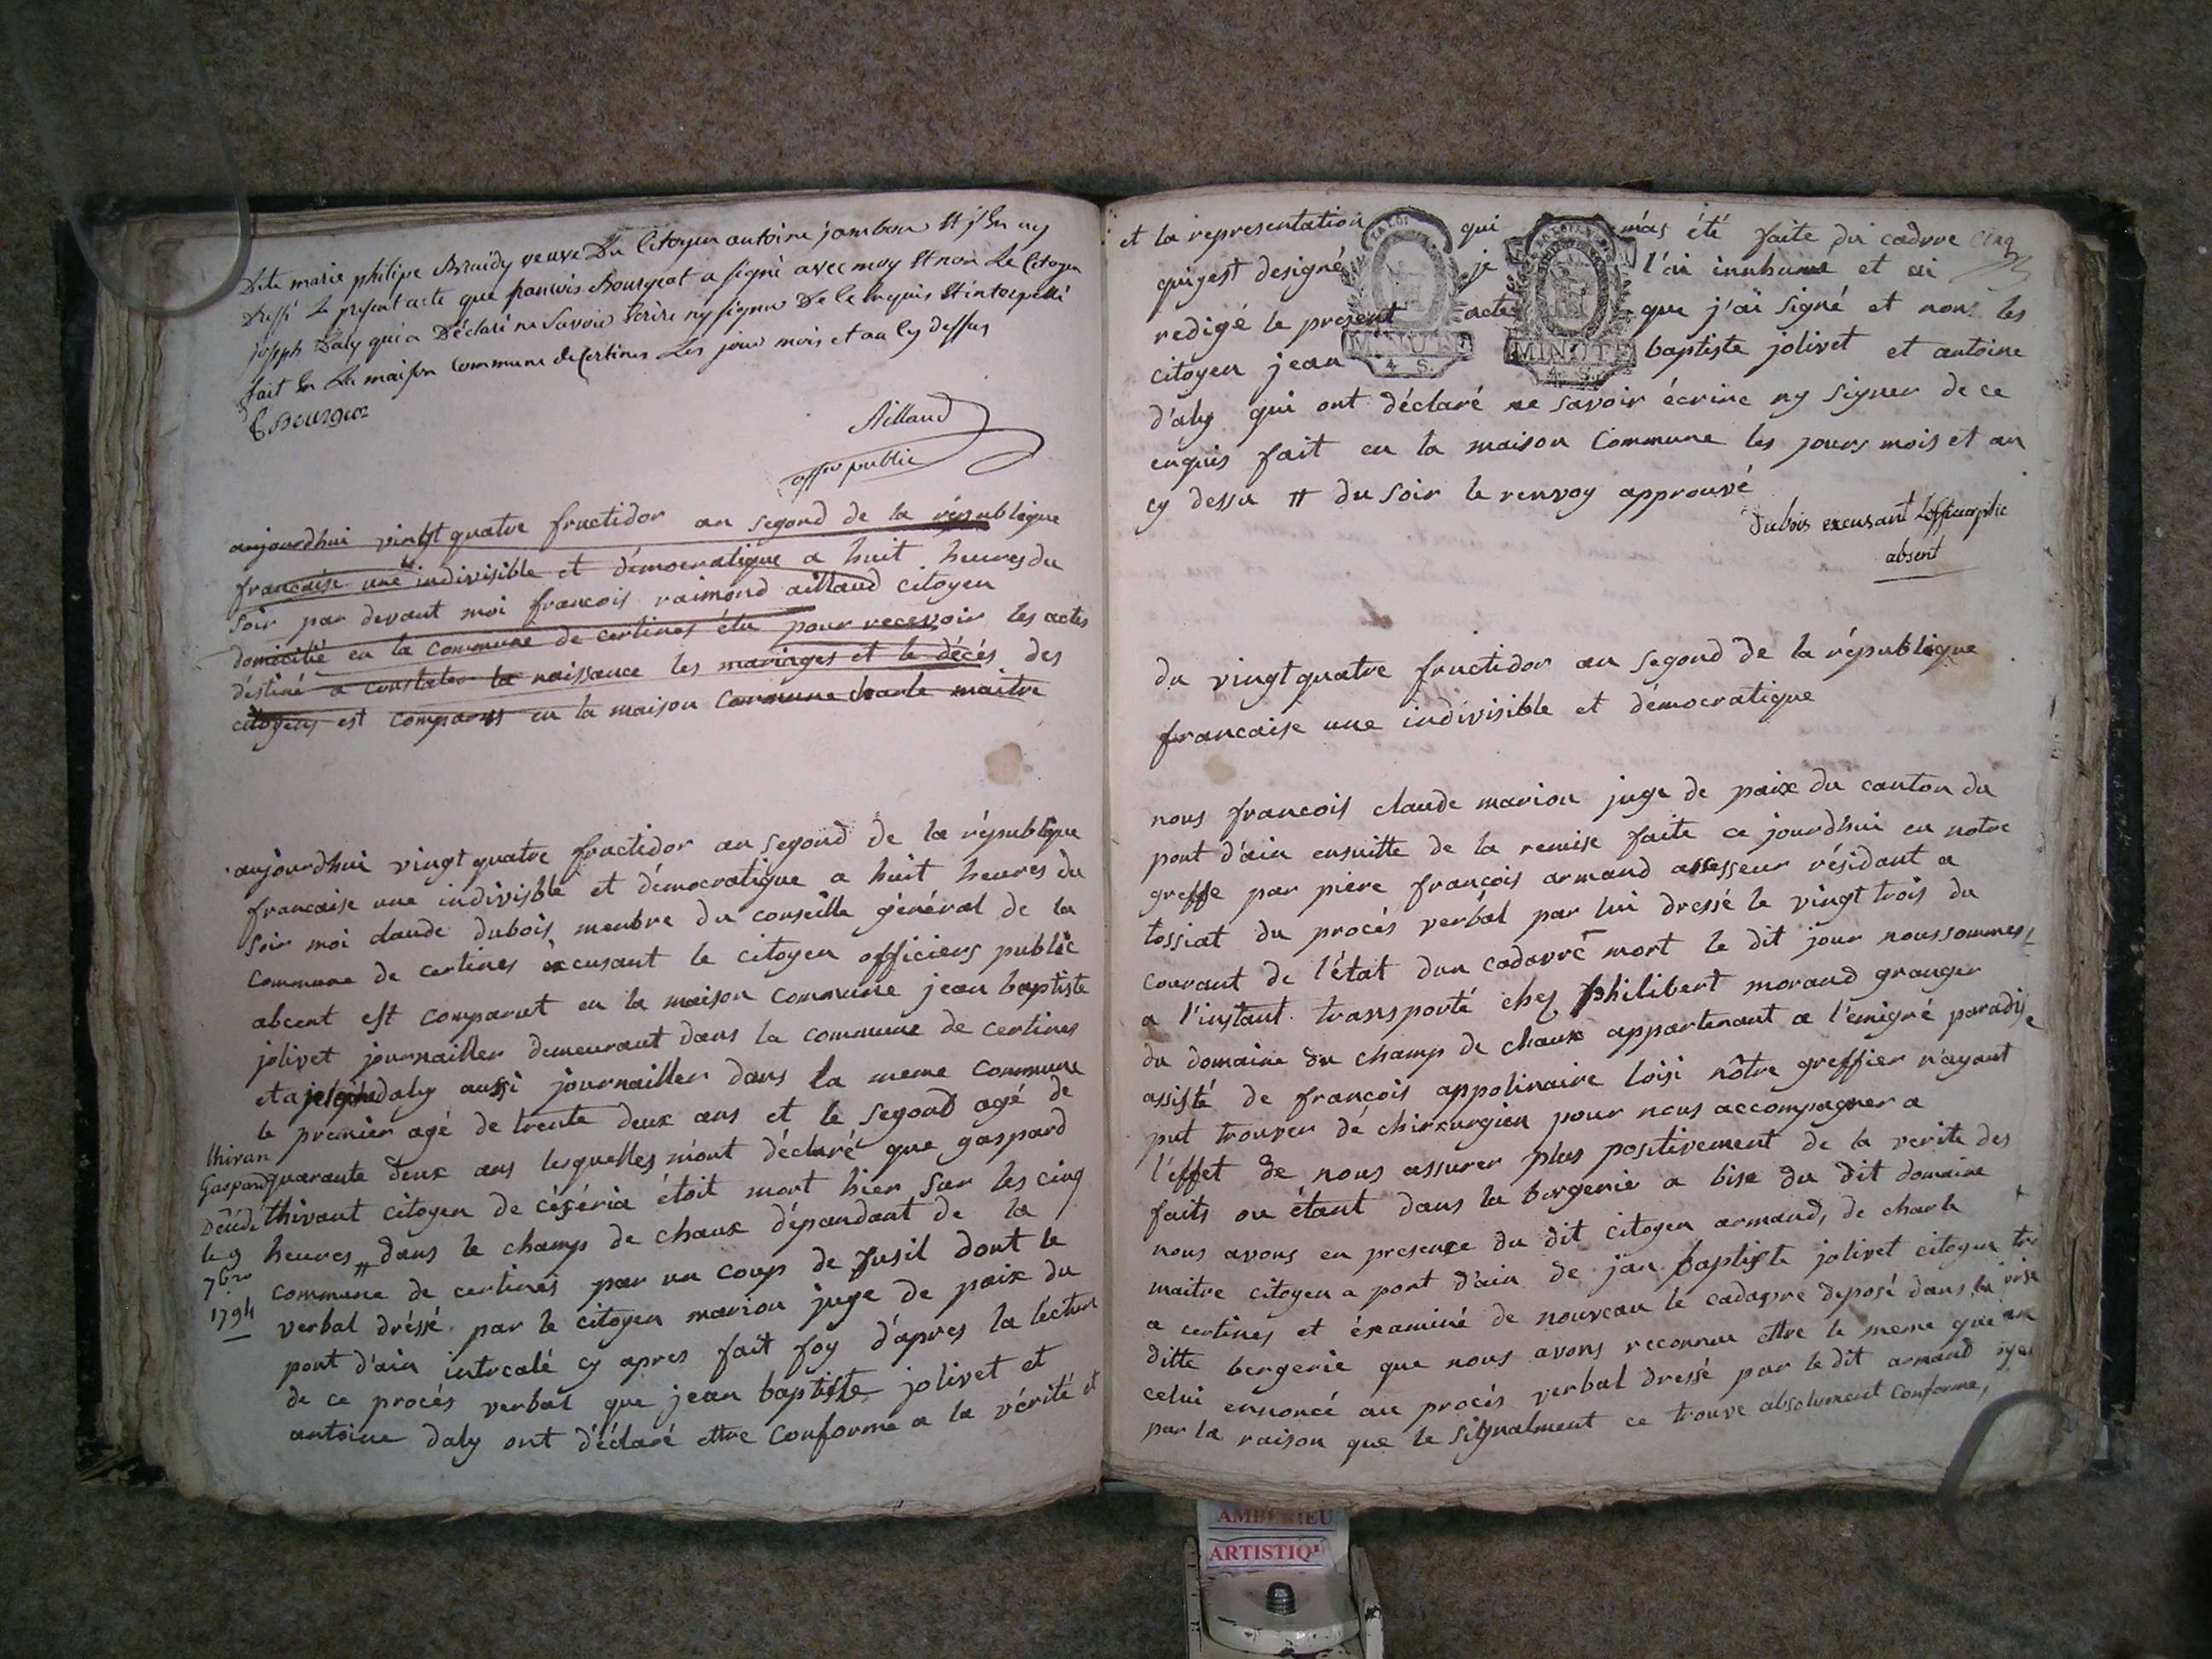 Dite marie philipe Braudy veuve Du Citoyen antoine jambon et j'En ay
Dressé le present acte que francois Bourgeat a signé avec moy et non Le Citoyen
joseph Daly qui a Déclaré ne savoir Ecrire ny signer De le Requis et interpellé
fait En La maison commune de Certines Les jour mois et an Cy dessus
Aillaud
offier public
aujourdhui vingt quatre fructidor an segond de la république
francaise une indivisible et démocratique a huit heures du
soir par devant moi francois raimond aillaud citoyen
domicilié en la commune de certines élu pour recevoir les actes
déstiné a constater la naissance les mariages et le décés des
citoyens est comparus en la maison commune charle maitre
aujourdhui vingt quatre fructidor an segond de la république
francaise une indivisble et démocratique a huit heures du
soir moi claude dubois membre du conseille général de la
commune de certines excusant le citoyen officiers public
abcent est comparut en la maison commune jean baptiste
jolivet journailler demeurant dans la commune de certines
et daly aussi journailler dans la meme commune
le premier agé de trente deux ans et le segond agé de
quarante deux ans lesquelles m'ont déclaré que gaspard
thivant citoyen de céséria étoit mort hier sur les cinq
heures # dans le champ de chaux dépandant de la
commune de certines par un coup de fusil dont le
verbal dréssé par le citoyen marion juge de paix du
pont d'ain intrcalé cy apres fait foy d'apres la lécture
de ce procés verbal que jean baptiste jolivet et
antoine daly ont d'éclaré ettre conforme a la vérité et
thivan
Gaspard
Décédé
le 9
7bre
1794
et la representation qui m'as été faite du cadvre cinq
qui est designé je l'ai innhumé et ai
redigé le present acte que j'ai signé et non les
citoyen jean baptiste jolivet et antoine
d'aly qui ont déclaré ne savoir écrire ny signer de ce
enquis fait en la maison Commune les jours mois et an
cy dessu # du soir le renvoy approuvé
LA LOI
MINUTE
4 S.
MINUTE
4 S.
dubois excusant l'officier plic
absent
du vingt quatre fructidor an segond de la république
francaise une indivisible et démocratique
nous francois claude marion juge de paix du canton du
pont d'ain ensuitte de la remise faite ce jourdhui en notre
greffe par piere françois armand assesseur résidant a
tossiat du procés verbal par lui dressé le vingt trois du
courant de l'état dun cadavre mort le dit jour nous sommes
a l'instant transporté chez philibert morand granger
du domaine du champ de chaux appartenant a l'émigré paradis
assisté de francois appolinaire loisi nôtre greffier n'ayant
put trouver dé chirxurgien pour nous accompagner a
l'effet de nous assurer plus positivement de la verite des
faits ou étant dans la bergerie a bise du dit domaine
nous avons en presence du dit citoyen armand, de charle
maitre citoyen a pont d'ain de jan baptiste jolivet citoyen
a certines et éxaminé de nouveau le cadavre deposé dans la
ditte bergerie que nous avons reconnu ettre le meme que
celui ennoncé au procés verbal dressé par le dit armand
par la raison que le signalment ce trouve absolument conforme,
AMBERIEU
ARTISTIQ